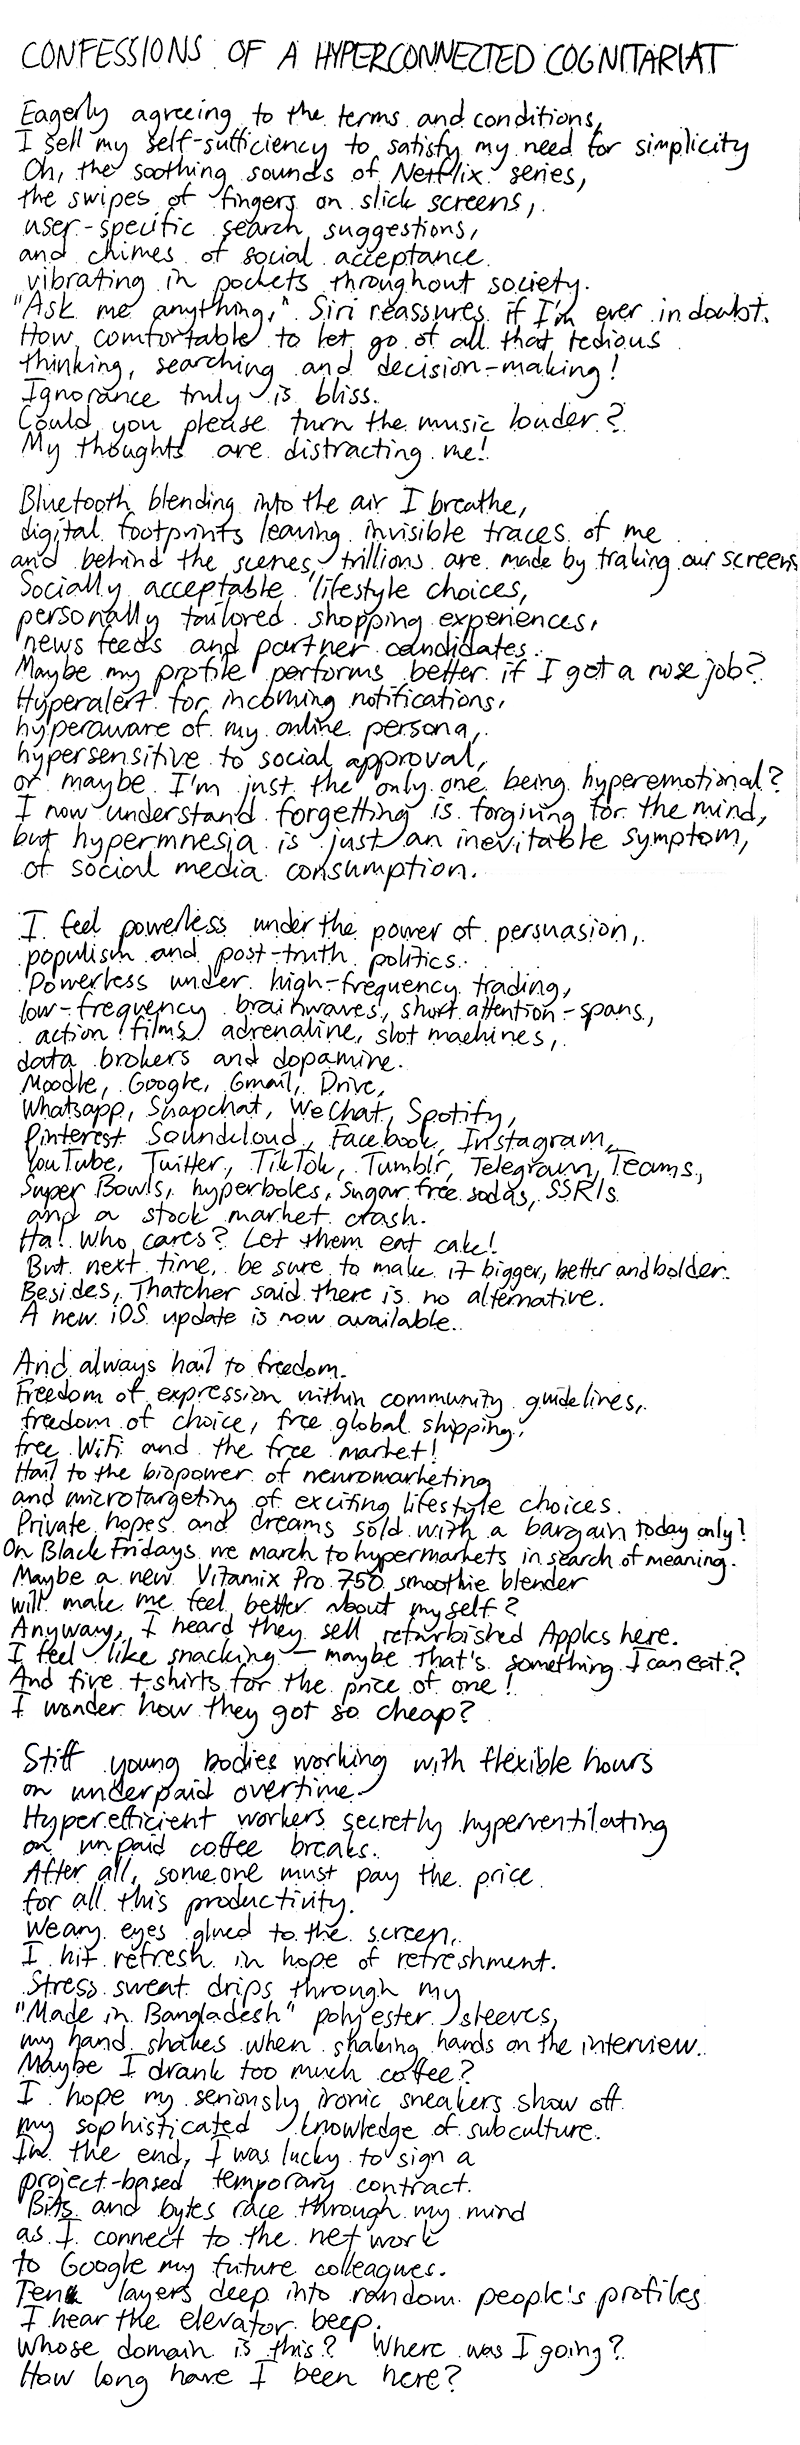 CONFESSIONS OF A HYPERCONNECTED COGNITARIAT
Eagerly agreeing to the terms and conditions,
I sell my self-sufficiency to satisfy my need for simplicity
Oh, the soothing sounds of Netflix series,
the swipes of fingers on slick screens,
user-specific search suggestions,
and chimes of social acceptance
vibrating in pockets throughout society.
"Ask me anything," Siri reassures if I'm ever in doubt.
How comfortable to let go of all that tedious
thinking, searching and decision-making!
Ignorance truly is bliss.
Could you please turn the music louder?
My thoughts are distracting me!
Bluetooth blending into the air I breathe,
digital footprints leaving invisible traces of me
and behind the scenes, trillions are made by traking our screens
Socially acceptable lifestyle choices,
personally tailored shopping experiences,
news feeds and partner candidates.
Maybe my profile performs better if I got a nose job?
Hyperalert for incoming notifications,
hyperaware of my online persona,
hypersensitive to social approval,
or maybe I'm just the only one being hyperemotional?
I now understand forgetting is forgiving for the mind,
but hypermnesia is just an inevitable symptom,
of social media consumption.
I feel powerless under the power of persuasion,
populism and post-truth politics.
Powerless under high-frequency trading,
low-frequency brainwaves, short attention-spans,
action films, adrenaline, slot machines,
data brokers and dopamine.
Moodle, Google, Gmail, Drive,
Whatsapp, Snapchat, WeChat, Spotify,
Pinterest Soundcloud, Facebook, Instagram,
YouTube, Twitter, TikTok, Tumblr, Telegram, Teams,
Super Bowls, hyperboles, sugar free sodas, SSRIs
and a stock market crash.
Ha! Who cares? Let them eat cake!
But next time, be sure to make it bigger, better and bolder.
Besides, Thatcher said there is no alternative.
A new iOS update is now available.
And always hail to freedom.
Freedom of expression within community guidelines,
freedom of choice, free global shipping,
free WiFi and the free market!
Hail to the biopower of neuromarketing
and microtargeting of exciting lifestyle choices.
Private hopes and dreams sold with a bargain today only!
On Black Fridays we march to hypermarkets in search of meaning.
Maybe a new Vitamix Pro 750 smoothie blender
will make me feel better about myself?
Anyway, I heard they sell refurbished Apples here.
I feel like snacking – maybe that's something I can eat?
And five t-shirts for the price of one!
I wonder how they got so cheap?
Stiff young bodies working with flexible hours
on underpaid overtime.
Hyperefficient workers secretly hyperventilating
on unpaid coffee breaks.
After all, someone must pay the price
for all this productivity.
Weary eyes glued to the screen,
I hit refresh in hope of refreshment.
Stress sweat drips through my
"Made in Bangladesh" polyester sleeves,
my hand shakes when shaking hands on the interview.
Maybe I drank too much coffee?
I hope my seriously ironic sneakers show off
my sophisticated knowledge of subculture.
In the end, I was lucky to sign a
project-based temporary contract.
Bits and bytes race through my mind
as I connect to the network
to Google my future colleagues.
Ten layers deep into random people's profiles
I hear the elevator beep.
Whose domain is this? Where was I going?
How long have I been here?